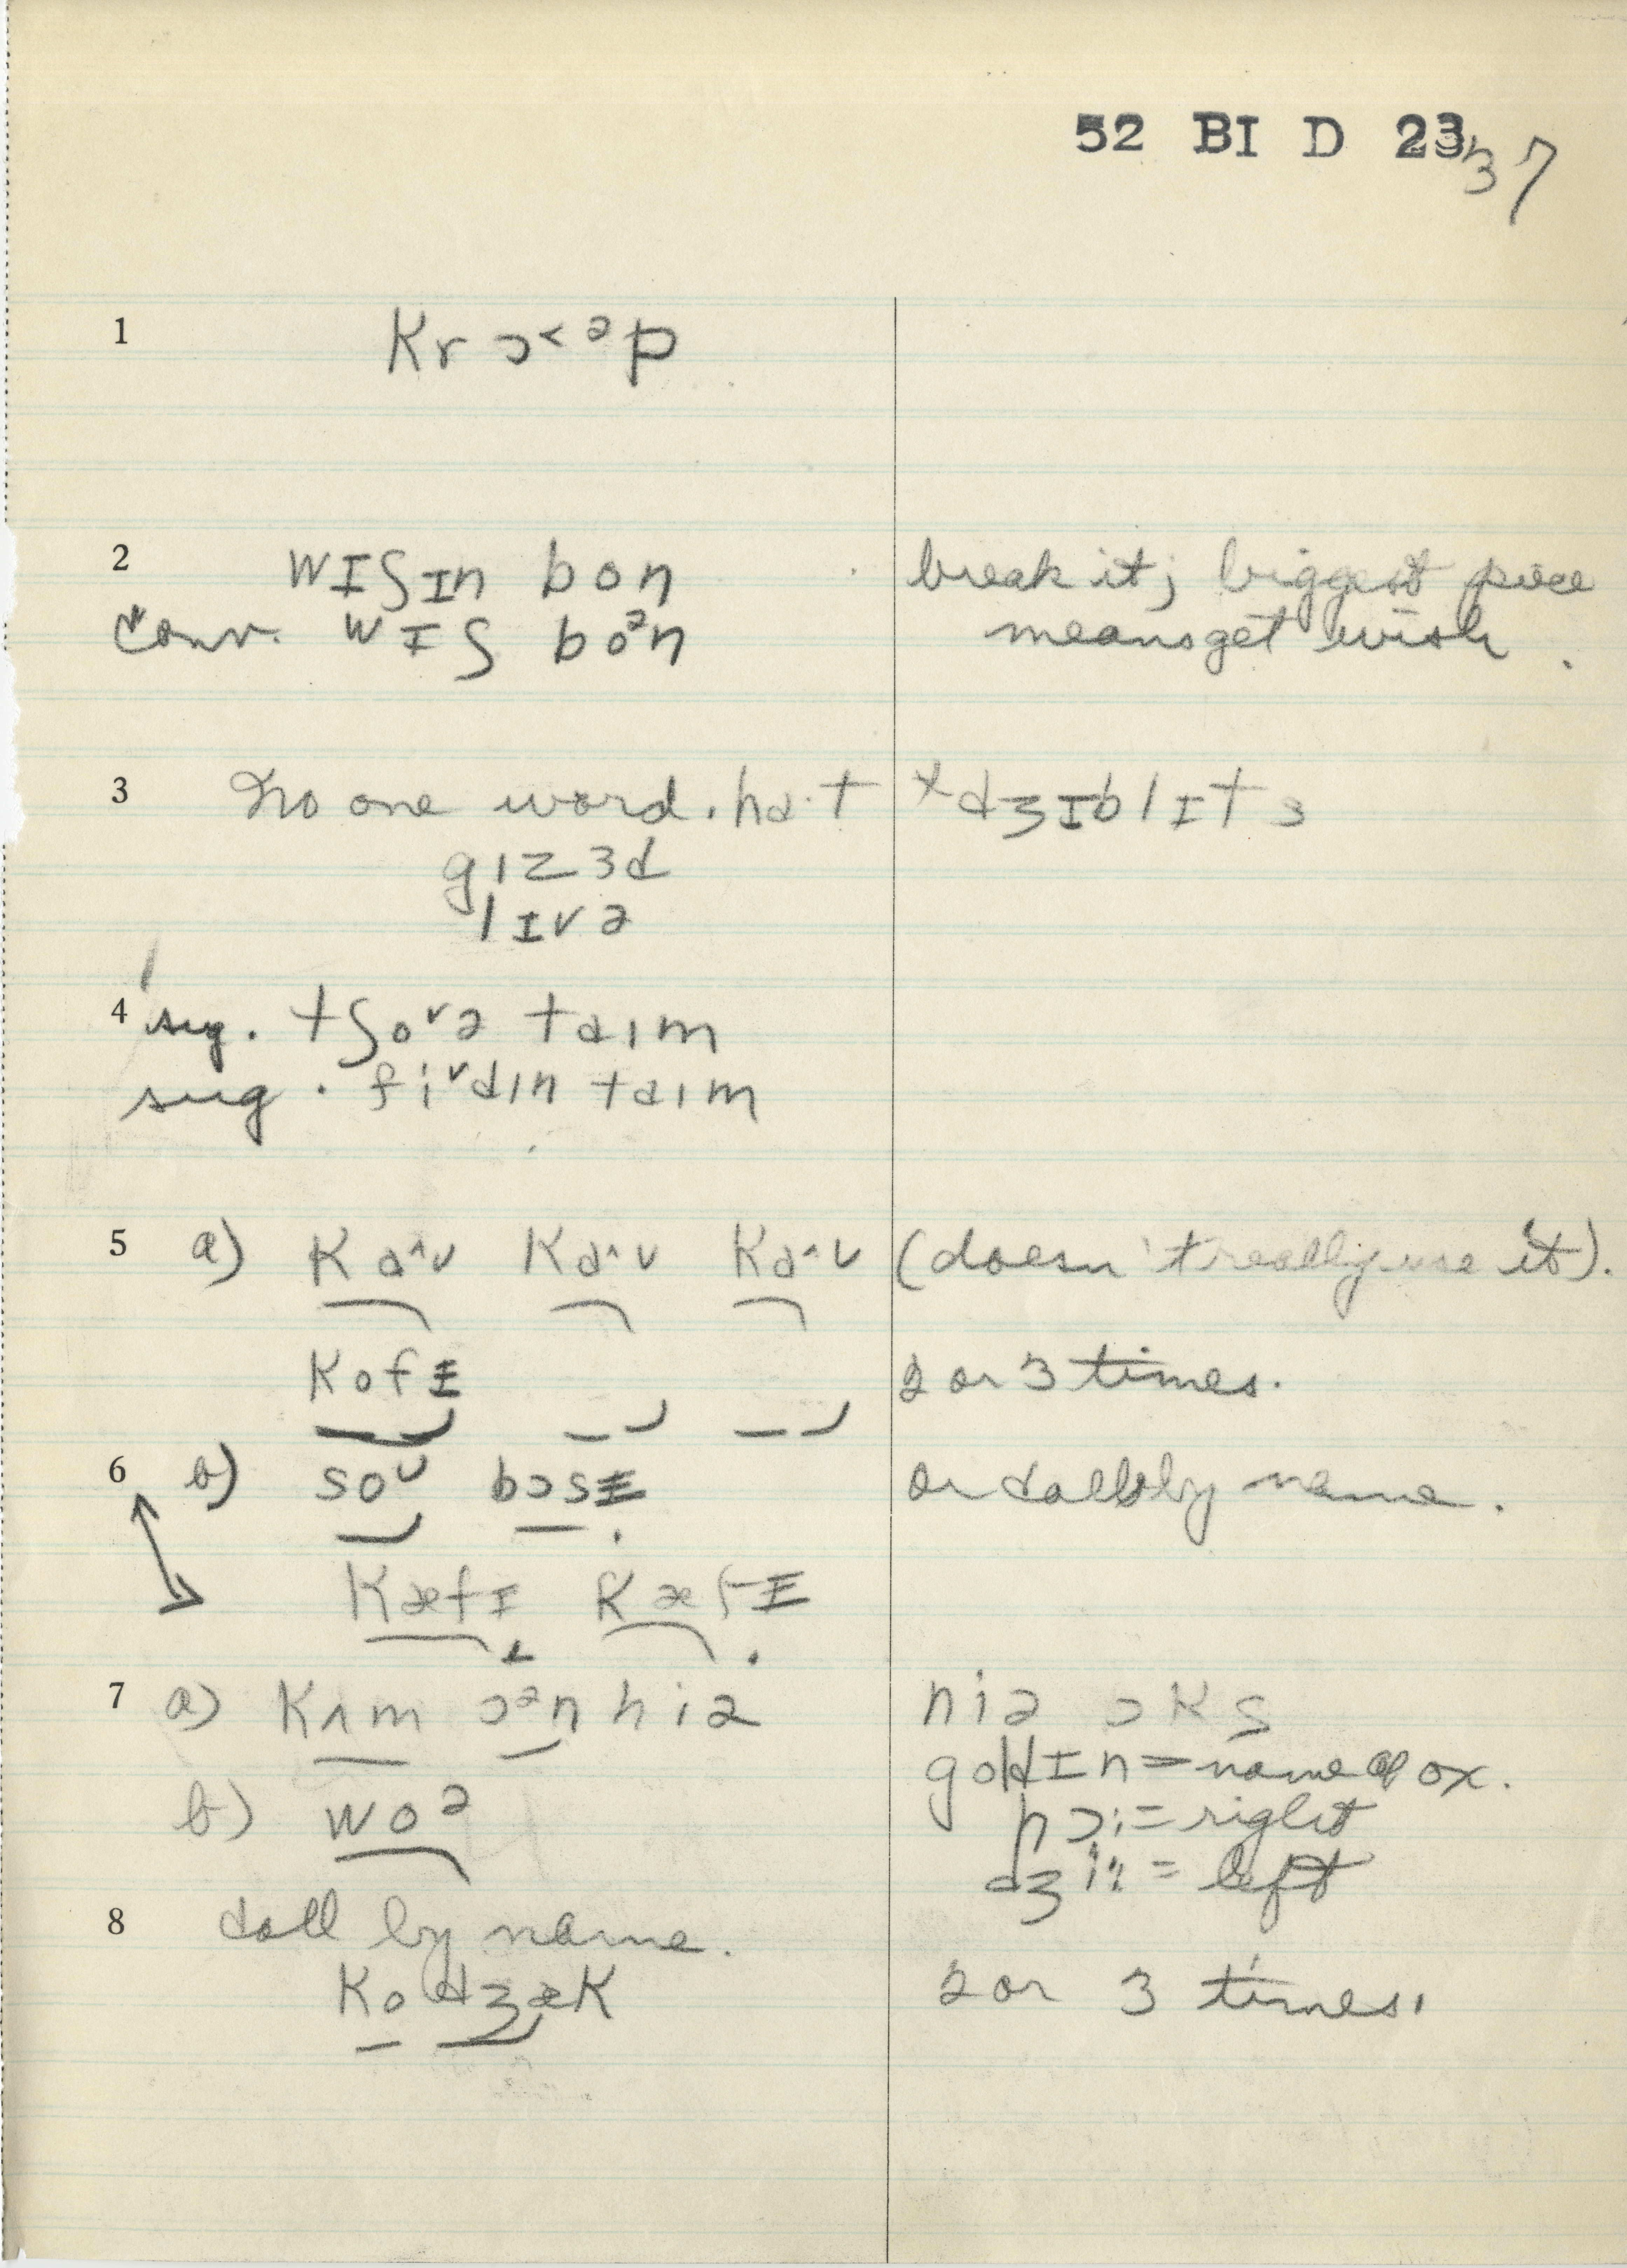 52 BI D 23
37
1 Krɔ˂ᵊp
2 wɪʃɪn bon break it; biggest piece
Conv. wɪʃ boᵊn means get wish.
3 No one word. haˑt xdʒɪblɪts
gɪzɜd
lɪvə
4 sug. tʃoᵛə taɪm
sug. fiᵛdɪn taɪm
5 a) Kɑ^ʊ Kɑ^ʊ Kɑ^ʊ (doesn't really use it).
Kofɪ 2 or 3 times.
6 b) soᵁ bɔsɪ or call by name.
Kæfɪ Kæfɪ
7 a) Kʌm ɔᵊn hiə niə ɔKs
goldɪn = name of ox.
b) woᵊ hɔi = right
dʒi: = left
8 Call by name.
KodʒæK 2 or 3 times.